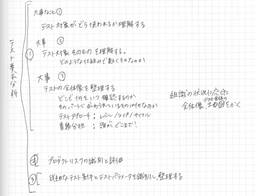 テスト基本方針
大事なこと①
テスト対象がどう使われるか理解する
大事 ②
① テスト対象そのものを理解する。
どのような仕組みで動くものなのか
大事 ③
テストの全体像を整理する
どこで何をいつ確認するのか
テストアプローチ: レベル/タイプ/サイクル
責務分担: 誰がどこまで!
組織の状況に合った
全体像、
② プロダクトリスクの識別と評価
③ 必要なテスト条件とテストパラメータを識別し、整理する